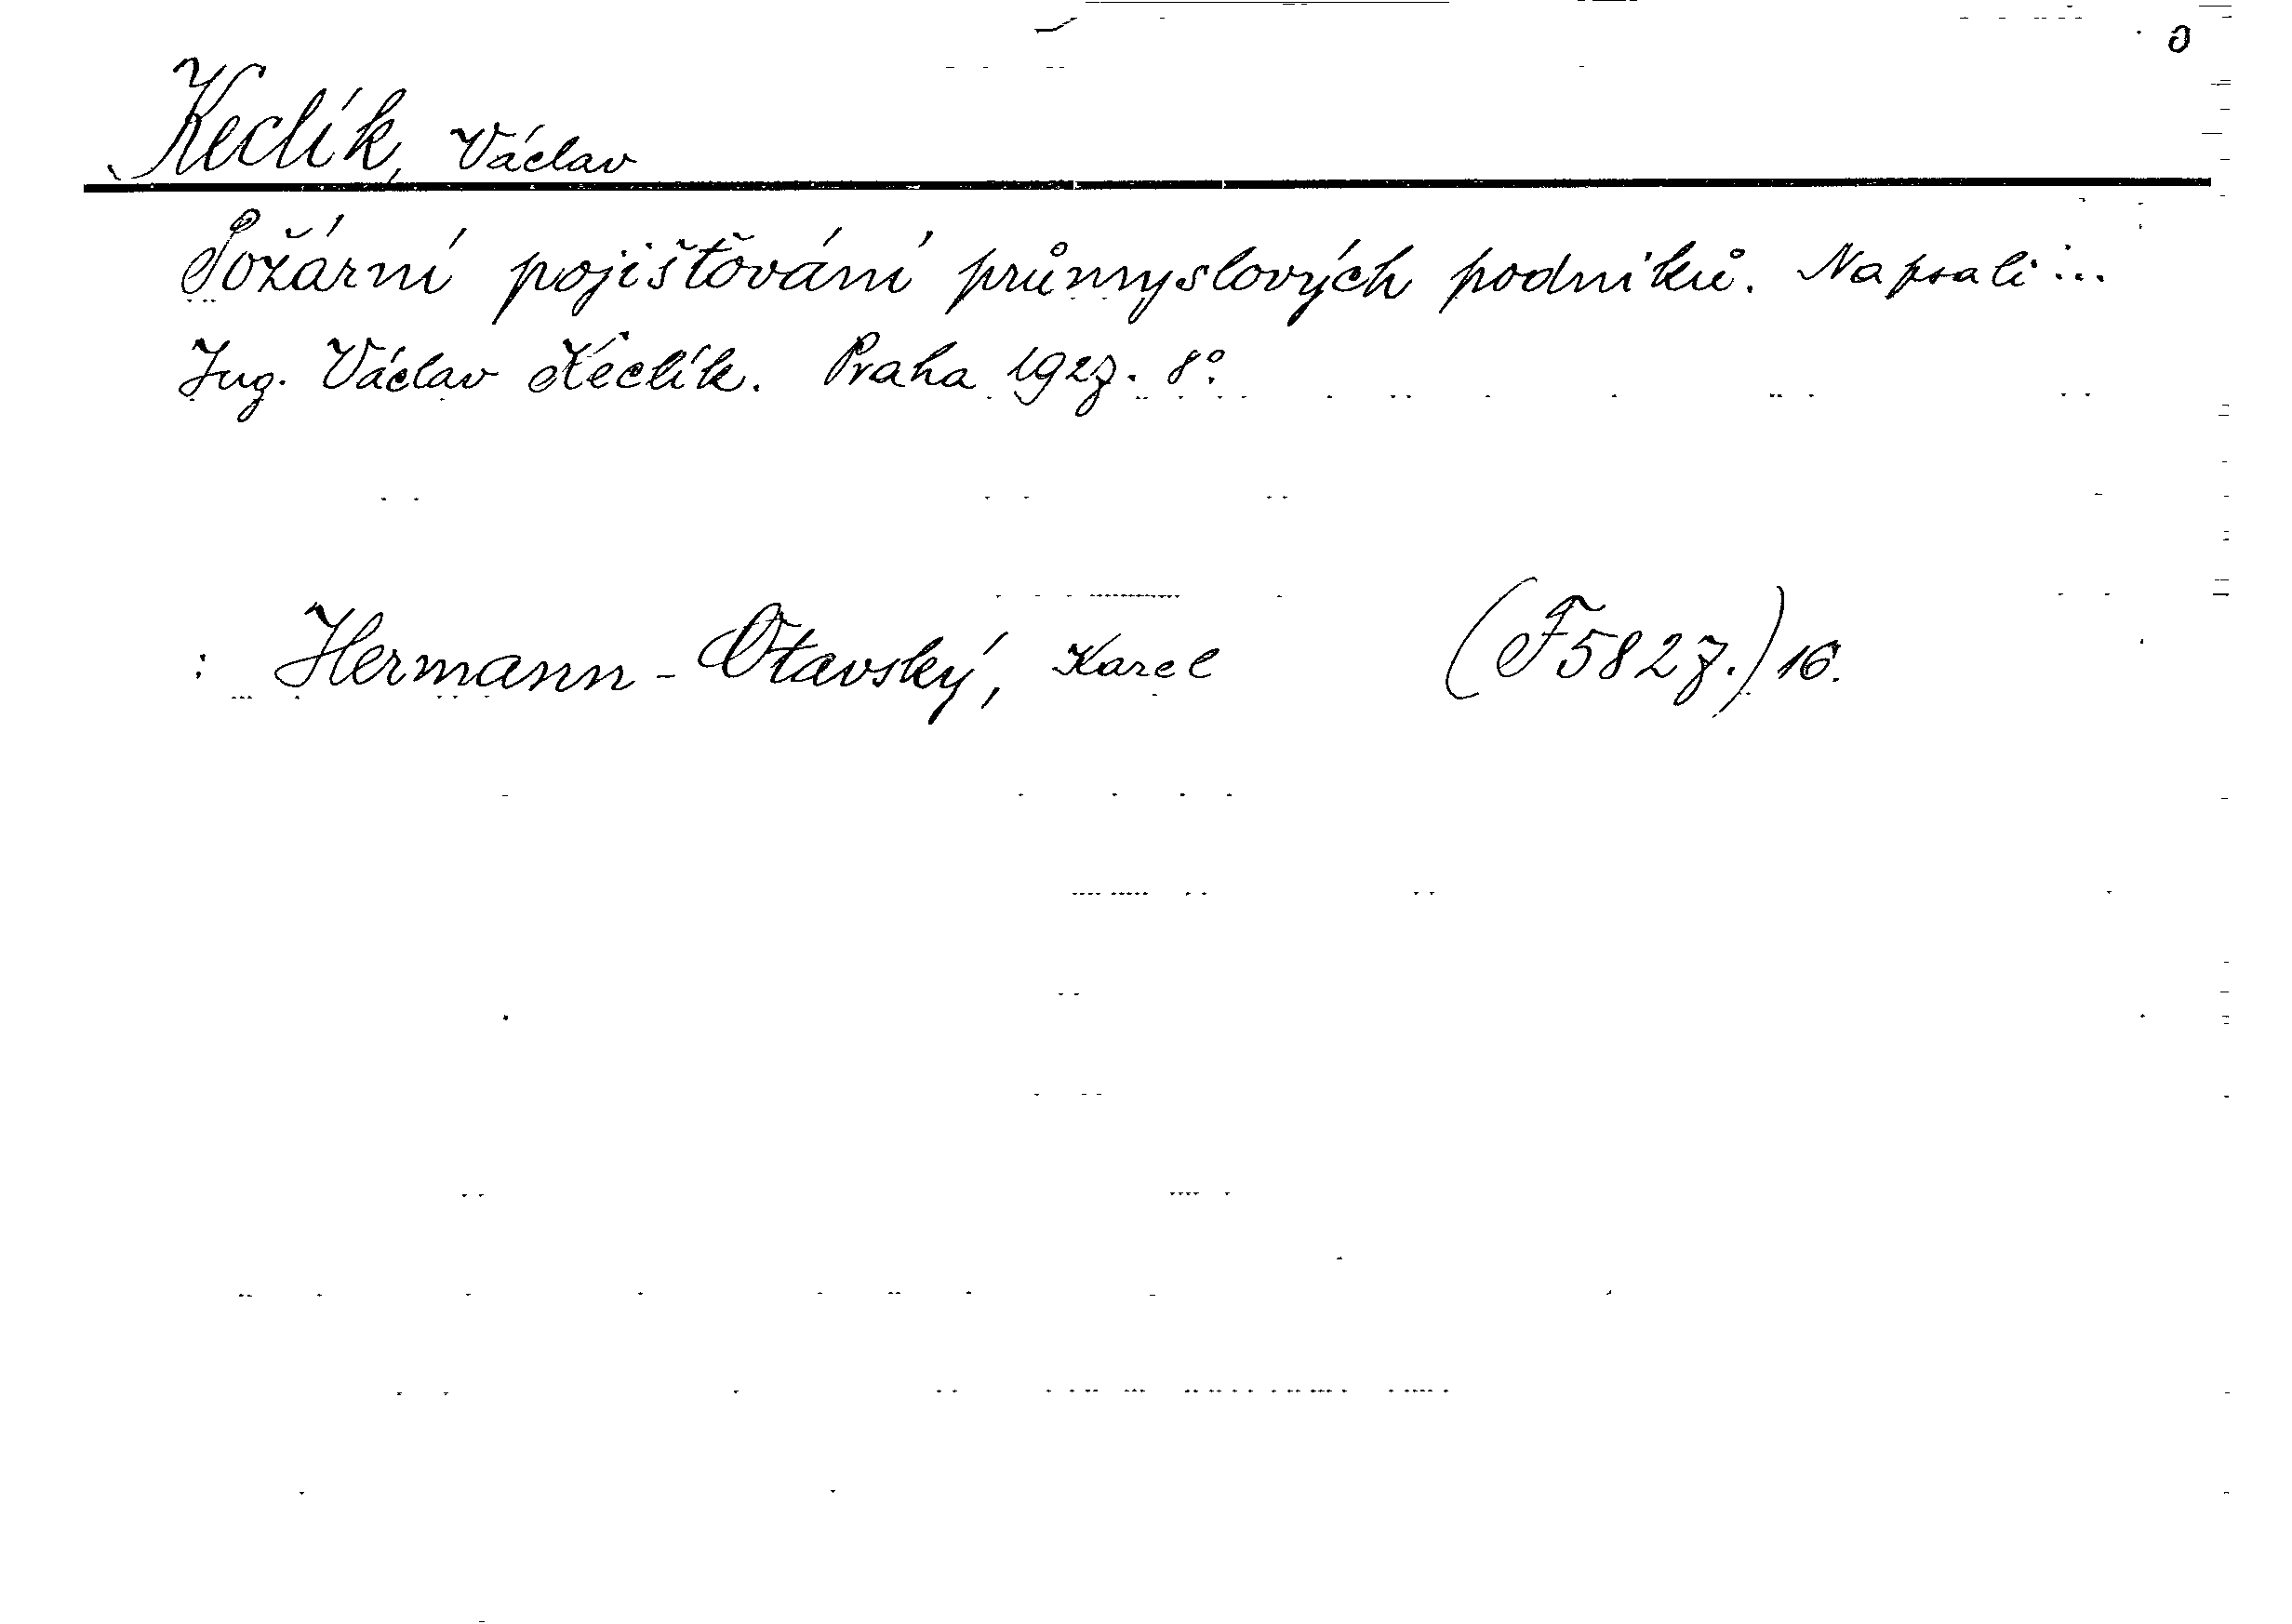 Keclík, Václav
Požární pojišťování průmyslových podniků. Napsali...
Ing. Václav Keclík. Praha 1927. 8°.
: Hermann-Otavský, Karel (F 5827.) 16.